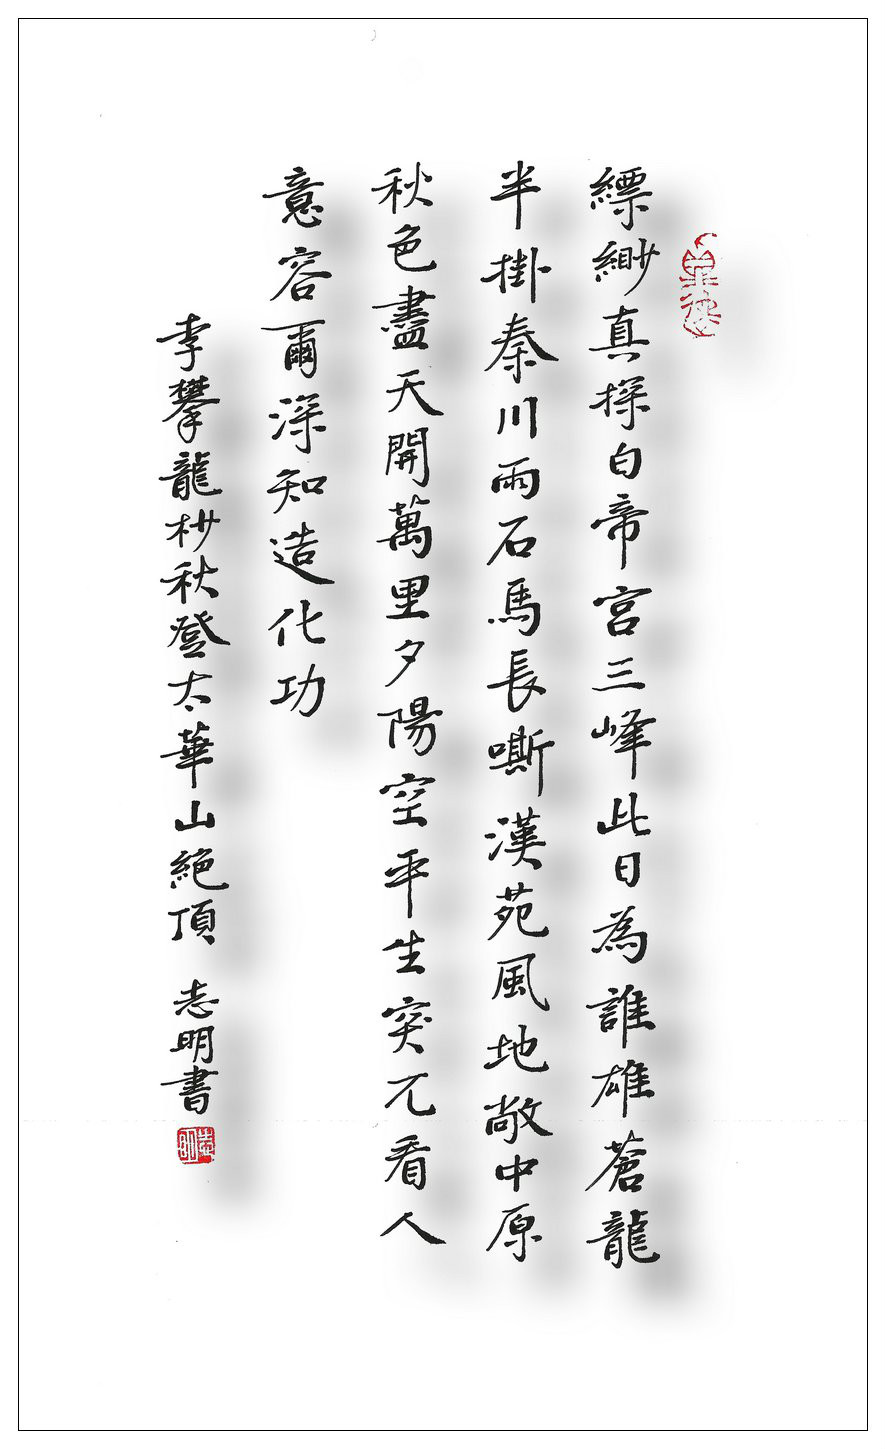 縹緲真探白帝宮三峰此日為誰雄蒼龍
半掛秦川雨石馬長嘶漢苑風地敞中原
秋色盡天開萬里夕陽空平生突兀看人
意容爾深知造化功
李攀龍杪秋登太華山絕頂 志明書
志明